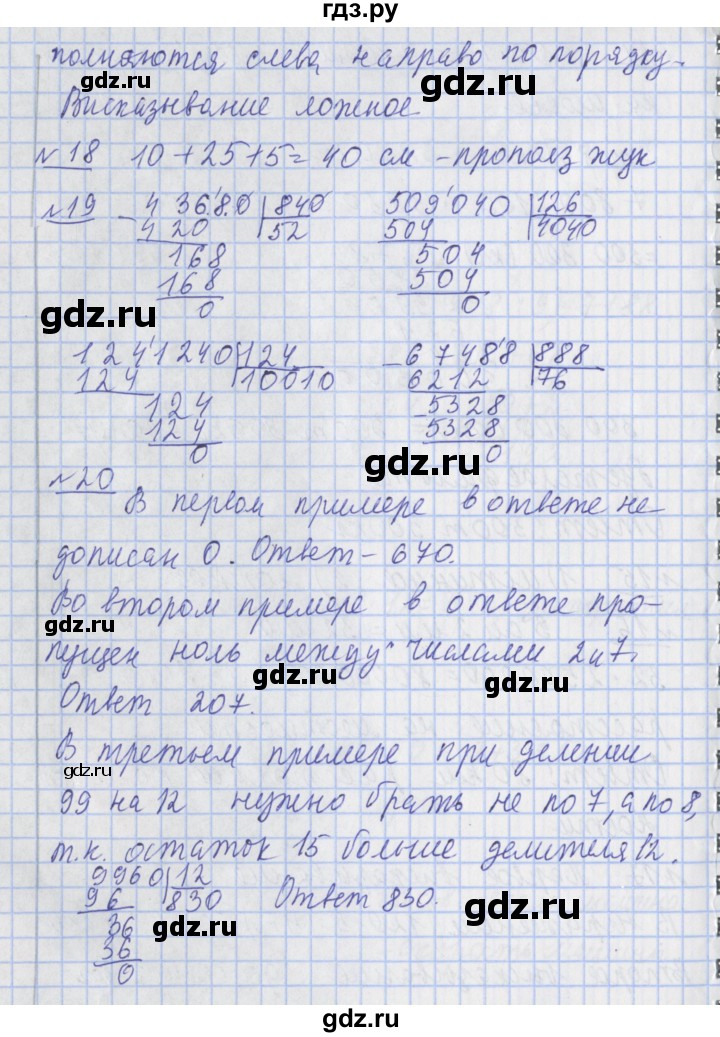 гдз.ру
полняются слева направо по порядку.
gdz.ru
Высказывание ложное
№18 10+25+5=40 см - прополз жук
№19 - 43680 | 840
420 | 52
168
168
0
509040 | 126
504 | 4040
504
504
0
gdz.ru
gdz.ru
1241240 | 124
124 | 10010
124
124
0
- 67488 | 888
6212 | 76
- 5328
5328
0
gdz.ru
№20
В первом примере в ответе не-
дописан 0. Ответ - 670.
Во втором примере в ответе про-
gdz.ru
пущен ноль между числами 2 и 7.
gdz.ru
gdz.ru
Ответ 207.
В третьем примере при делении
gdz.ru
99 на 12 нужно брать не по 7, а по 8,
т.к. остаток 15 больше делителя 12.
9960 | 12
96 | 830
36
36
0
Ответ 830.
gdz.ru
gdz.ru
gdz.ru